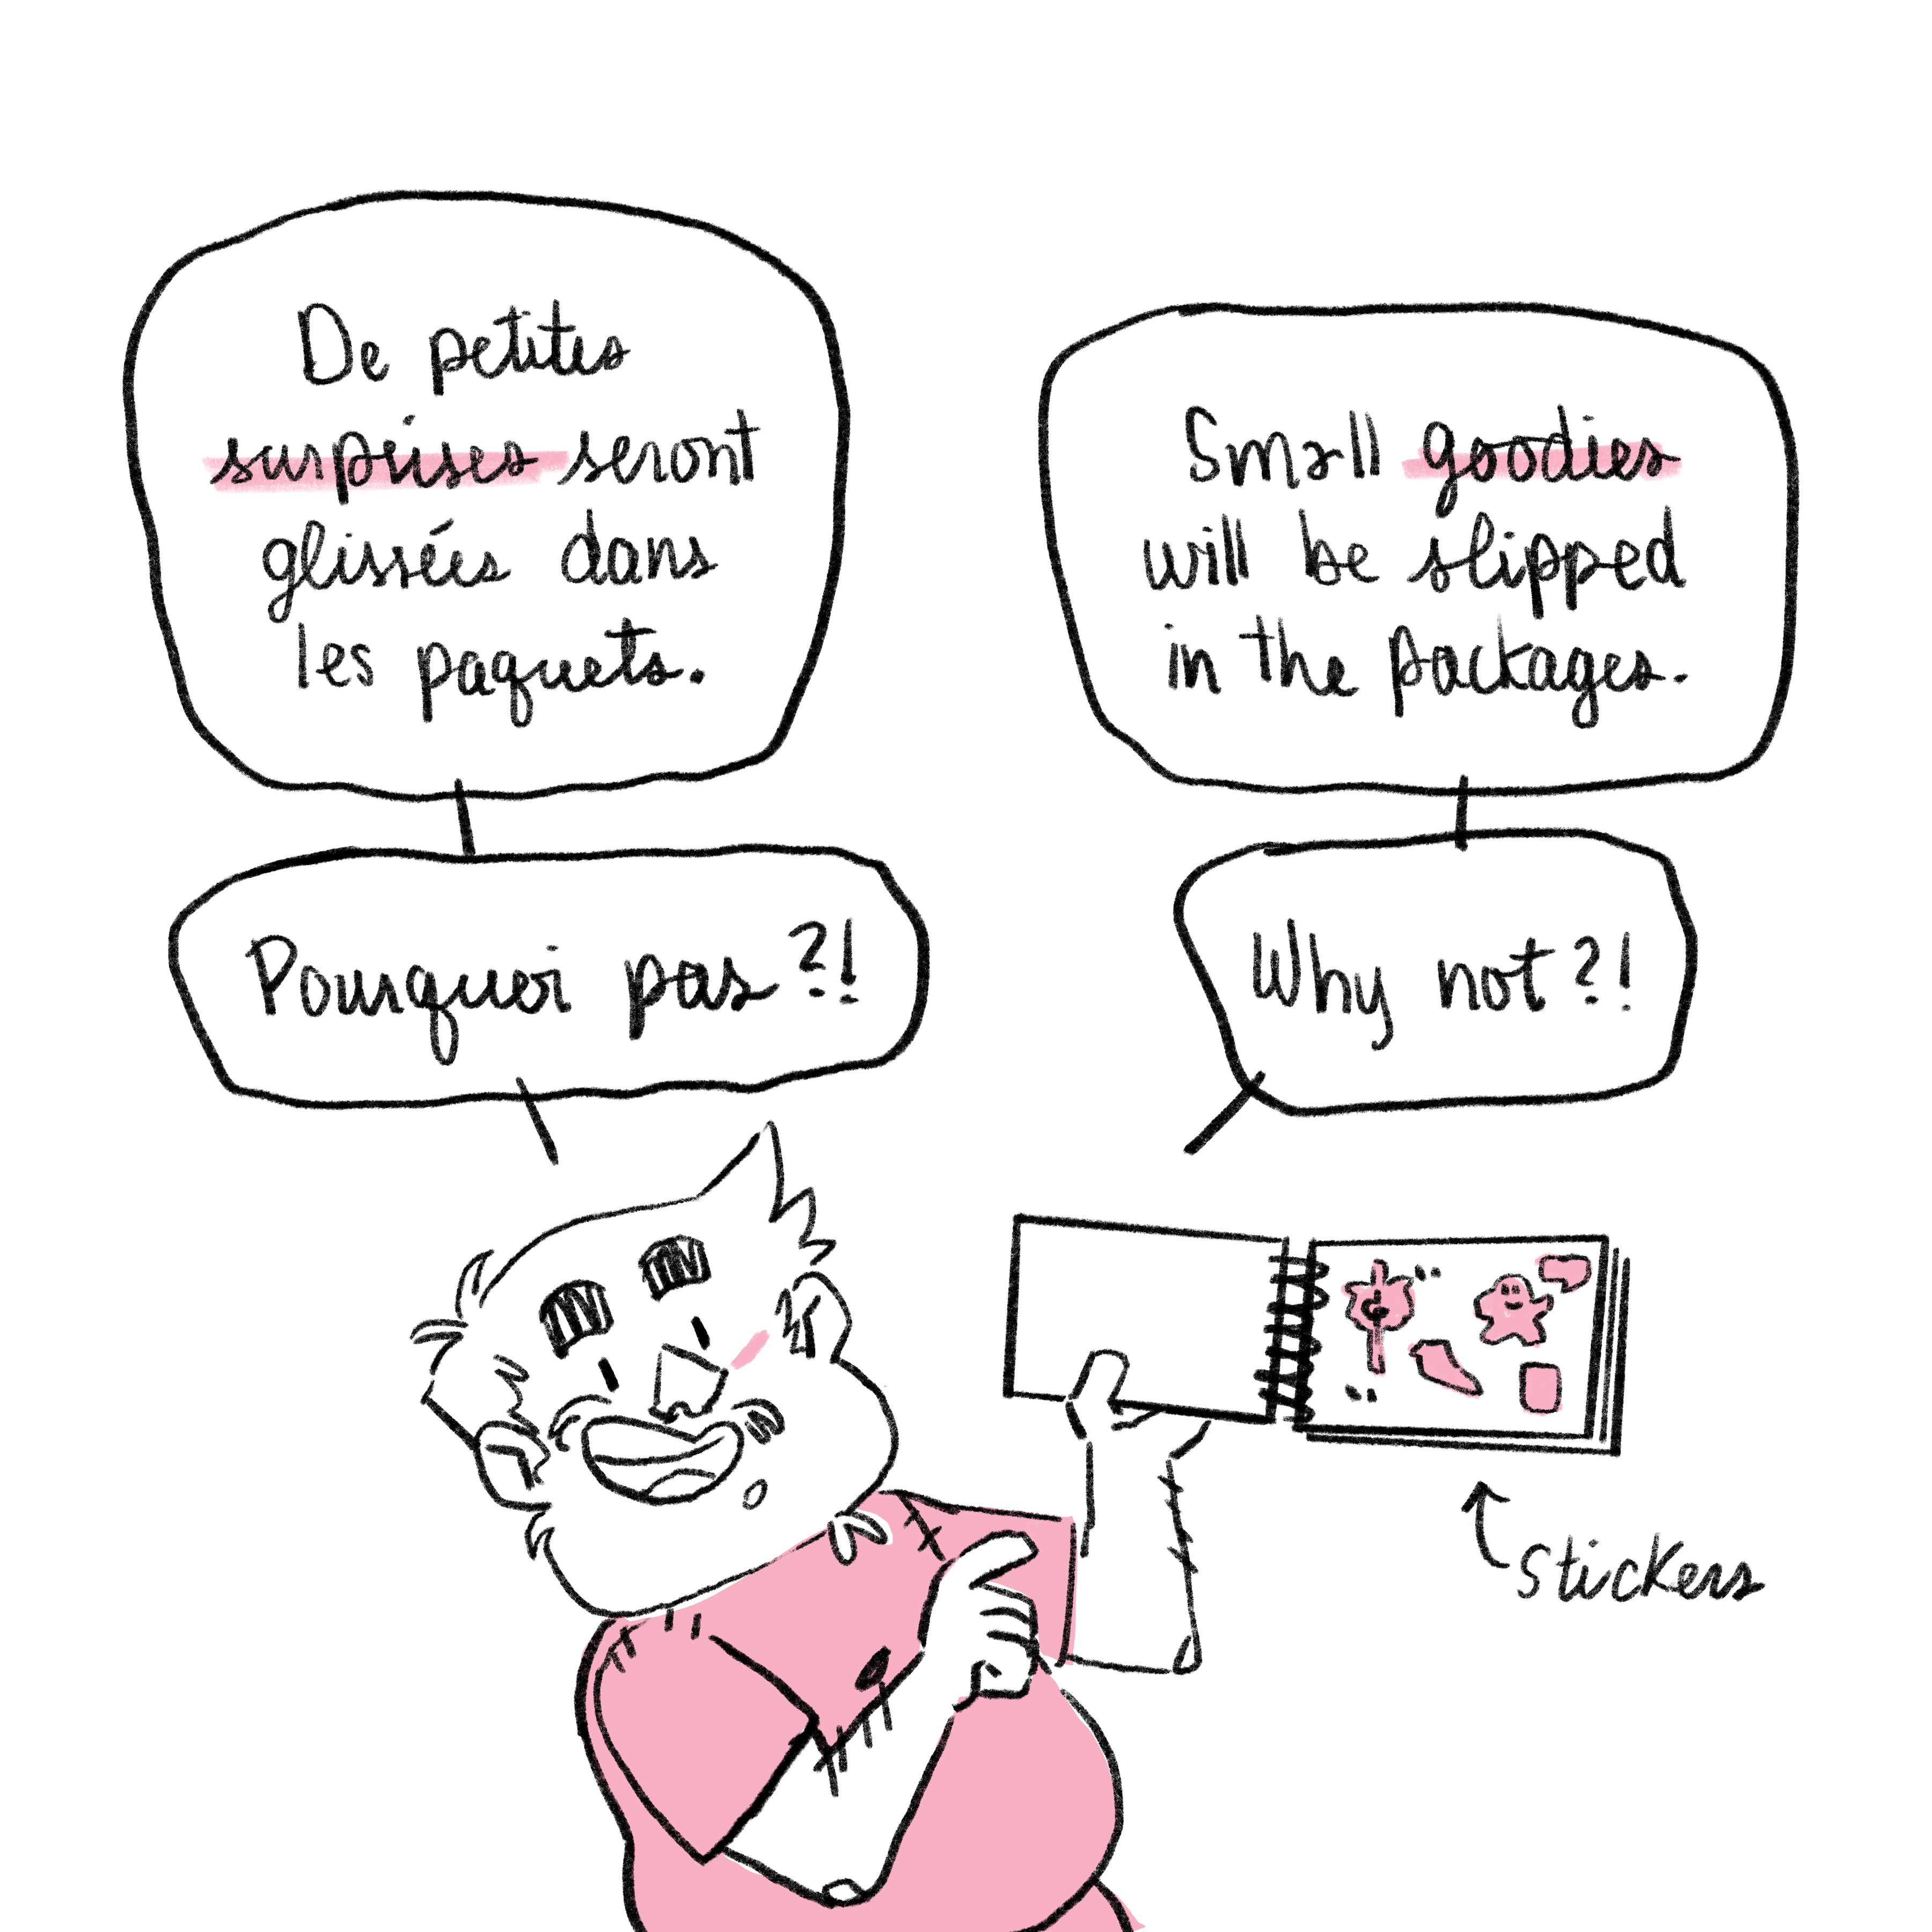 De petites
surprises seront
glissées dans
les paquets.
Pourquoi pas ?!
Small goodies
will be slipped
in the packages.
Why not ?!
Stickers